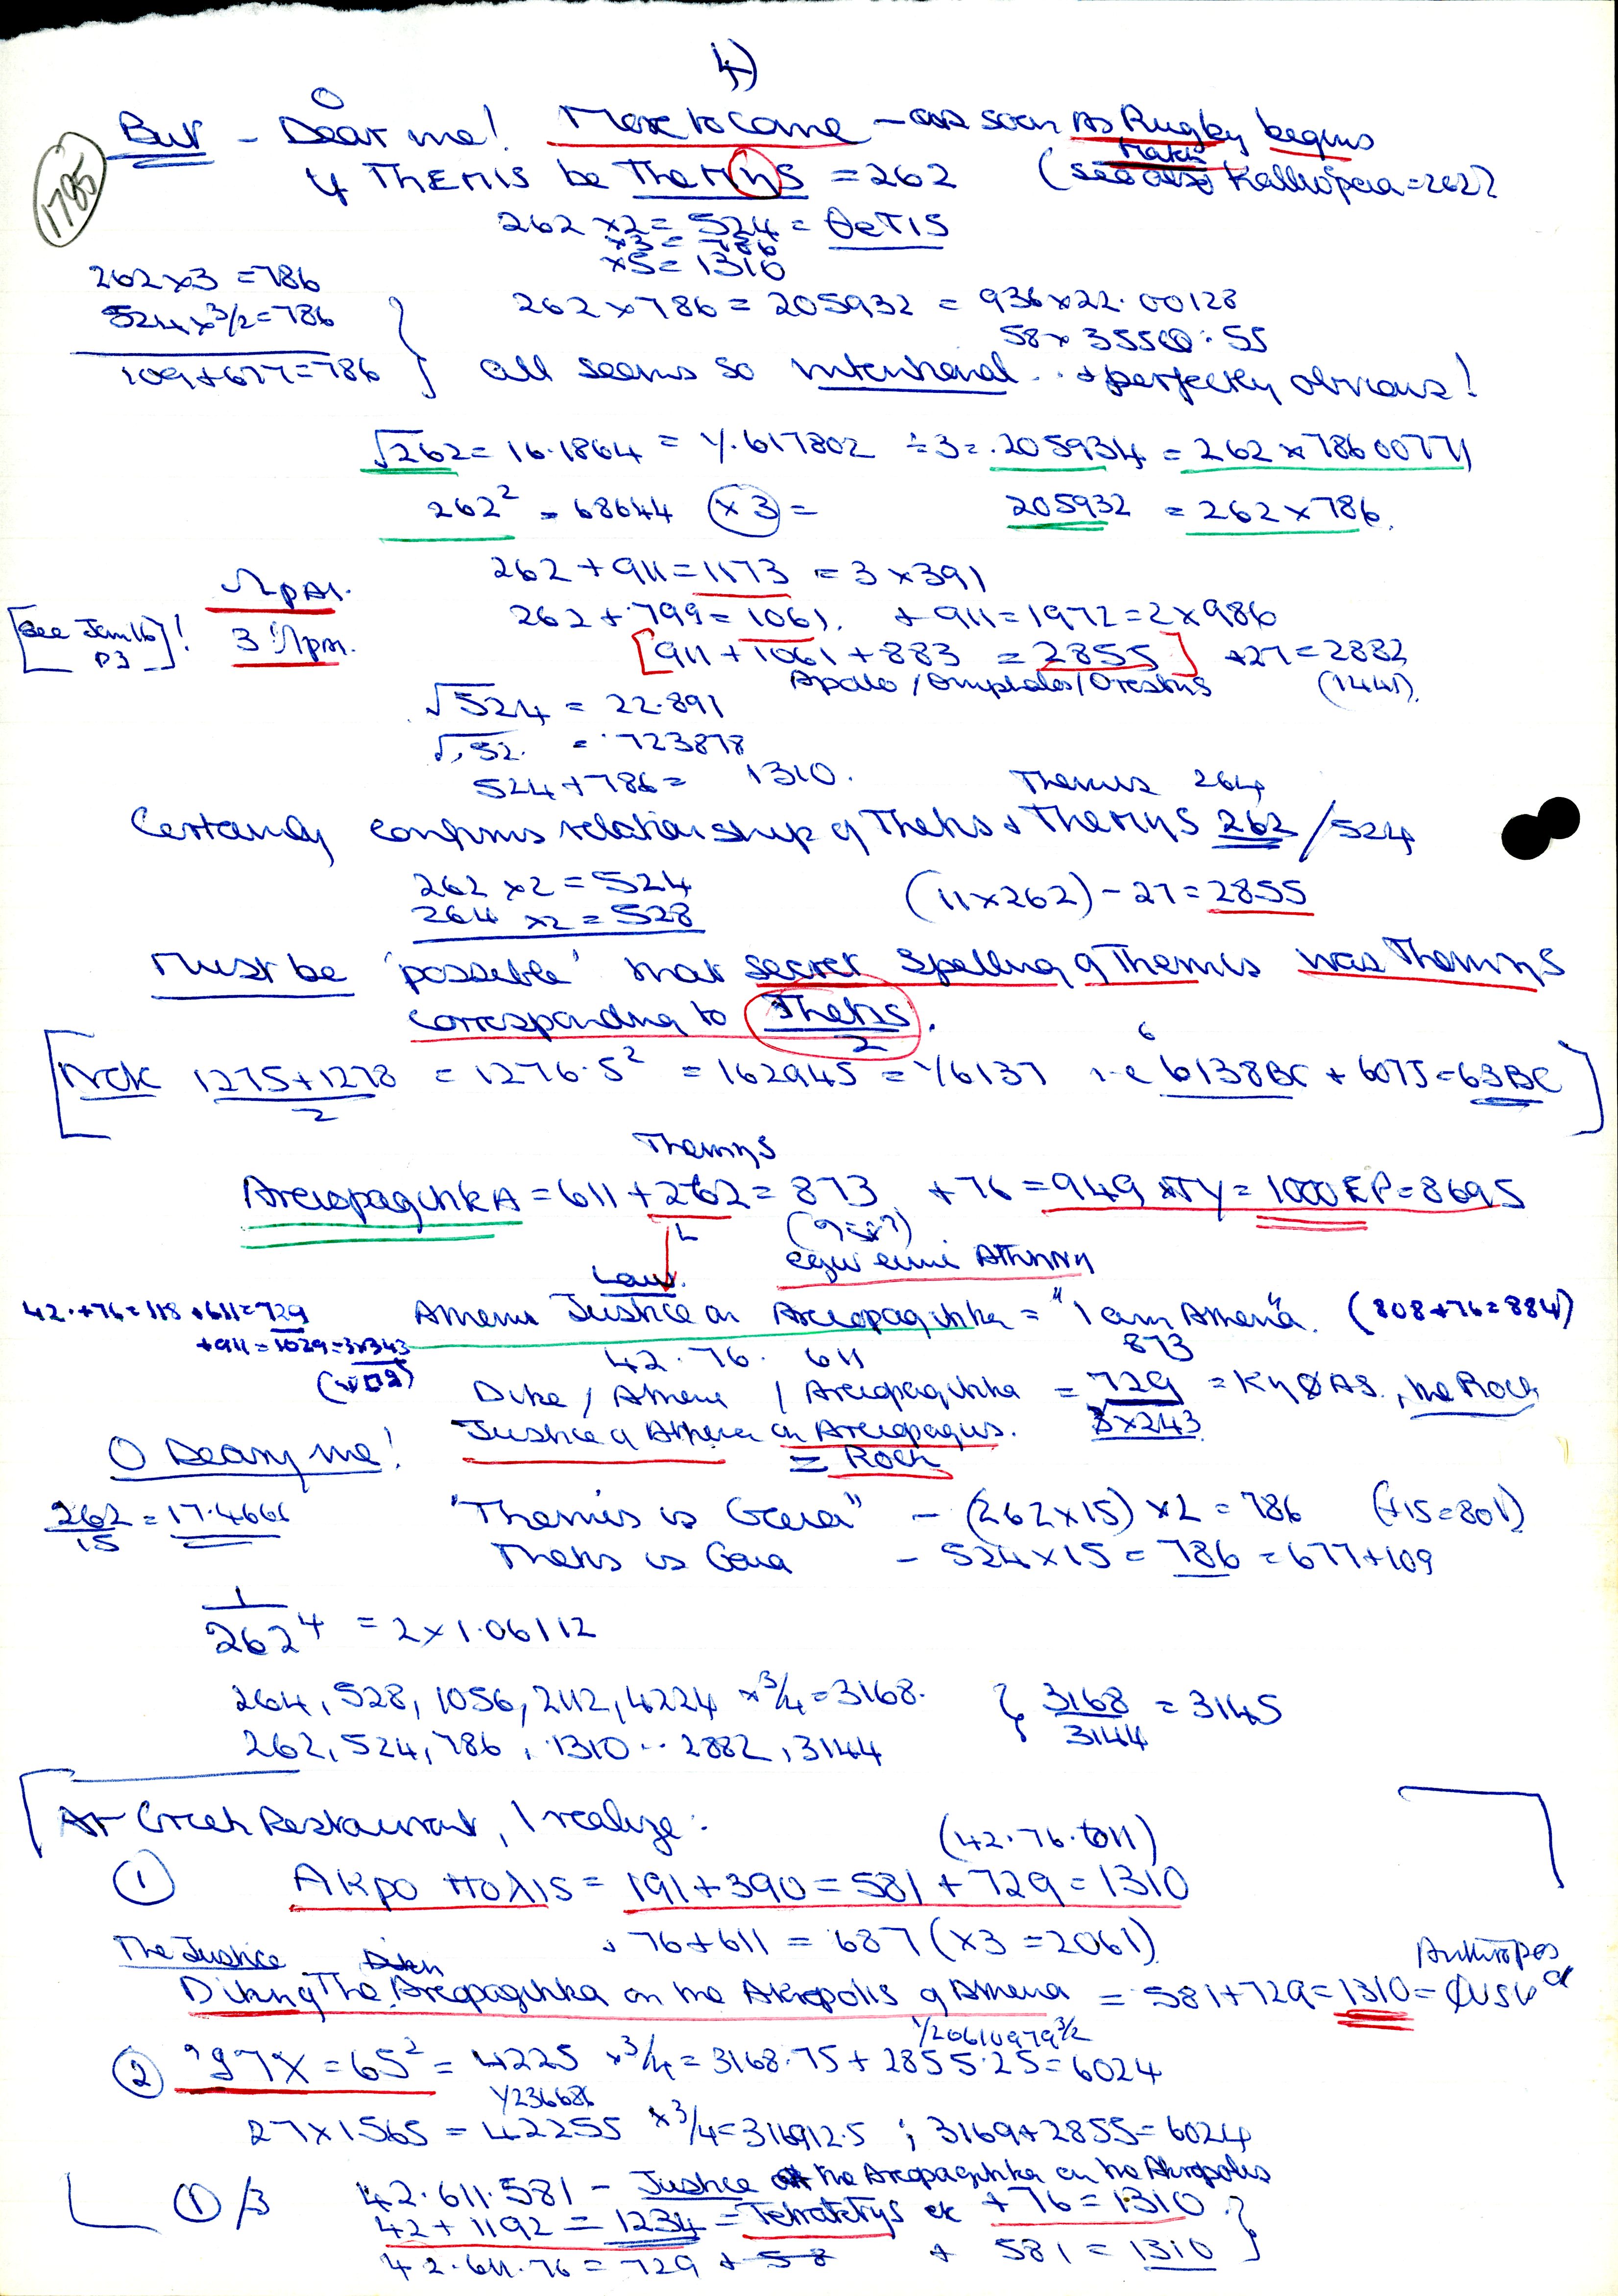 4)
O
But - Dear me! More to come - as soon as Rugby begins
Match
1785
If THEMIS be THEMηS = 262 (see also Kalliopeia = 262)
262 x 2 = 524 = ΘETIS
x3 = 786
x5 = 1310
262 x 3 = 786
524 x 3/2 = 786
109 + 677 = 786
262 x 786 = 205932 = 936 x 22.00128
58 x 3550.55
all seems so intentional .. + perfectly obvious!
√262 = 16.1864 = 1/.617802 ÷ 3 = .205934 = 262 x 786 00771
262² = 68644 x 3 = 205932 = 262 x 786.
262 + 911 = 1173 = 3 x 391
262 + 799 = 1061. + 911 = 1972 = 2 x 986
[see Jem 16 P3]!
3
[911 + 1061 + 883 = 2855] + 27 = 2882
Apollo / Omphalos / Orestes (1441)
√524 = 22.891
√.52. = .723878
524 + 786 = 1310.
Themis 264
Certainly confirms relationship of Thetis & Themηs 262 / 524
262 x 2 = 524
264 x 2 = 528
(11 x 262) - 27 = 2855
Must be 'possible' that secret spelling of Themis was Themηs
corresponding to Thetis/2.
6
[Note 1275 + 1278 / 2 = 1276.5² = 162945 = 1/6137 i.e 6138 BC + 6075 = 63 BC]
Themηs
AreiopagitikA = 611 + 262 = 873 + 76 = 949 x TY = 1000 EP = 8695
Law.
egw eimi AThηNη
42 + 76 = 118 + 611 = 729
+ 911 = 1029 = 3 x 343
Athena Justice on Areiopagitika = "I am Athena". (808 + 76 = 884)
42. 76. 611
873
Dike / Athena / Areiopagitika = 729 = KηΦAS., the Rock
Justice of Athena on Areiopagus. 3 x 243
= Rock
O Deary me!
262/15 = 17.4666
"Themis is Gaia" - (262 x 15) x 2 = 786 (+15 = 801)
Thetis is Gaia - 524 x 15 = 786 = 677 + 109
1/262⁴ = 2 x 1.06112
264, 528, 1056, 2112, 4224 x 3/4 = 3168.
262, 524, 786, .1310 .. 2882, 3144
} 3168/3144 = 3145
At Greek Restaurant, I realize:
(42.76.611)
① AKPO ΠOλIS = 191 + 390 = 581 + 729 = 1310
76 + 611 = 687 (x3 = 2061)
The Justice
Anthropos
Dikη of The Areopagitika on the Akropolis of Athena = 581 + 729 = 1310 =
1/20610979 3/2
② = 65² = 4225 x 3/4 = 3168.75 + 2855.25 = 6024
1/236686
27 x 1565 = 42255 x 3/4 = 316912.5 ; 3169 + 2855 = 6024
① /3 42.611.581 - Justice of the Areopagitika on the Akropolis
42 + 1192 = 1234 = Tetraktys ek + 76 = 1310
42.611.76 = 729 + 58 + 581 = 1310